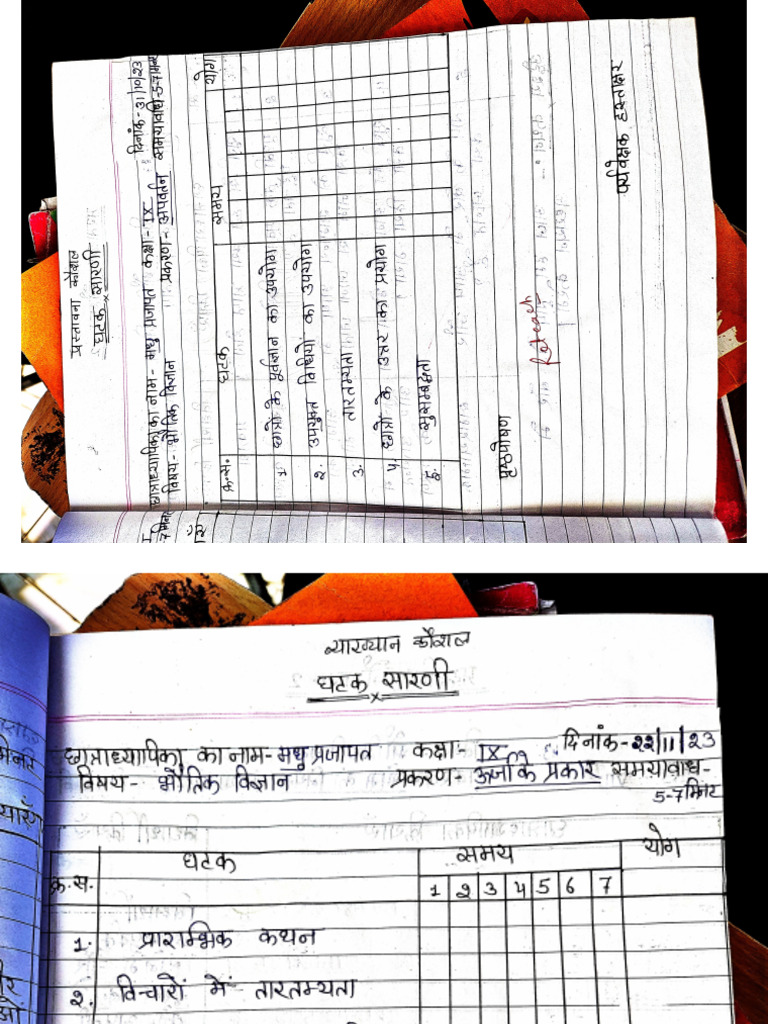 प्रस्तावना कौशल
घटक सारणी
छात्राध्यापिका का नाम- मधु प्रजापत कक्षा- IX दिनांक- 31/10/23
विषय - भौतिक विज्ञान प्रकरण - अपवर्तन समयावधि-5-7मिनट
क्र.स. घटक समय योग
1. छात्रों के पूर्वज्ञान का उपयोग
२. उपयुक्त विधियों का उपयोग
३. तारतम्यता
४. छात्रों के उत्तर का प्रयोग
५. सुसम्बद्धता
पृष्ठपोषण
Reteach
पर्यवेक्षक हस्ताक्षर
व्याख्यान कौशल
घटक सारणी
छात्राध्यापिका का नाम- मधु प्रजापत कक्षा- IX दिनांक- २२/11/२3
विषय - भौतिक विज्ञान प्रकरण- ऊर्जा के प्रकार समयावधि-
5-7 मिनट
क्र.स. घटक समय योग
1 २ 3 4 5 6 7
1. प्रारम्भिक कथन
२. विचारों में तारतम्यता